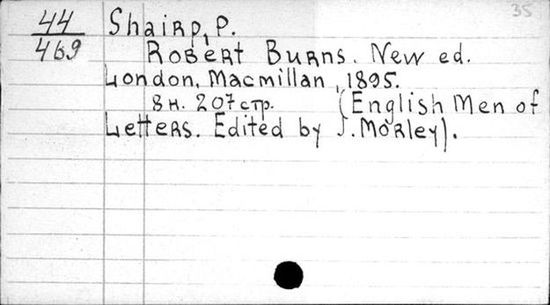 35
44 Shairp, P.
469 Robert Burns. New ed.
London, Macmillan, 1895.
8н. 207стр. (English Men of
Letters. Edited by J. Morley).